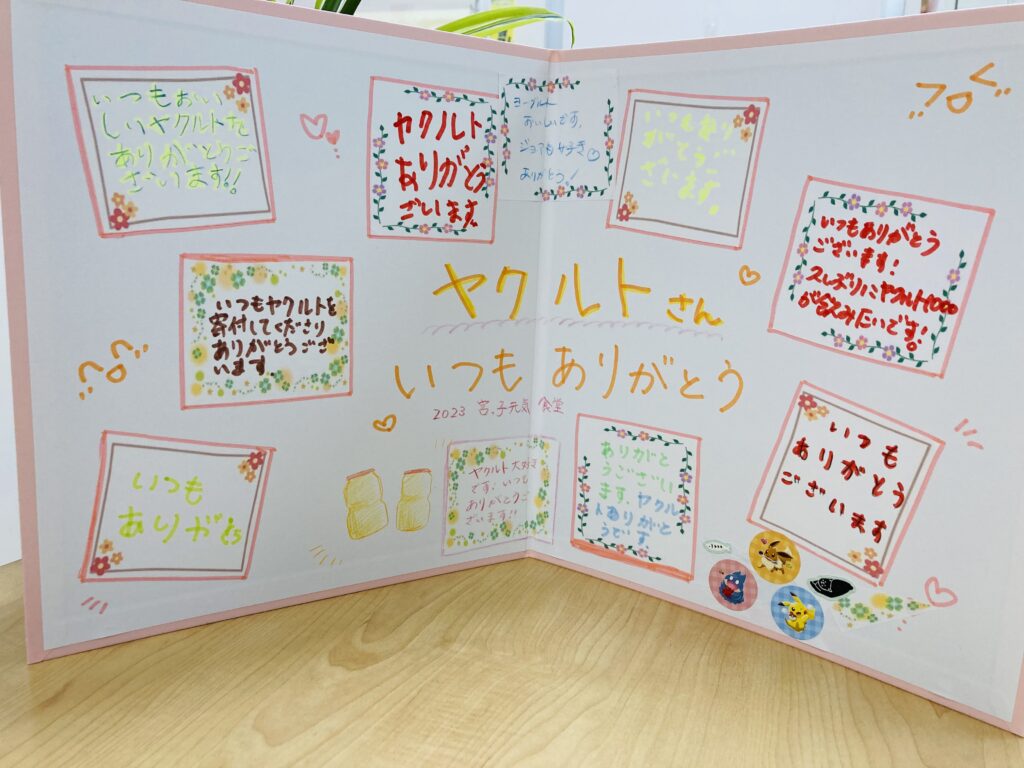 いつもおい
しいヤクルトを
ありがとうご
ざいます!!
ヤクルト
ありがとう
ございます。
ヨーグルト
おいしいです。
ジョアも好き♡
ありがとう!
いつもあり
がとうご
ざいます。
いつもありがとう
ございます!
久しぶりにヤクルト1000
が飲みたいです!
いつもヤクルトを
寄付してくださり
ありがとうござ
います。
ヤクルトさん
いつも ありがとう
2023 宮っ子元気食堂
いつも
ありがとう
ヤクルト大好き
です。いつも
ありがとうご
ざいます!!
ありがと
うござい
ます。ヤクル
トありがと
うです
いつも
ありがとう
ございます